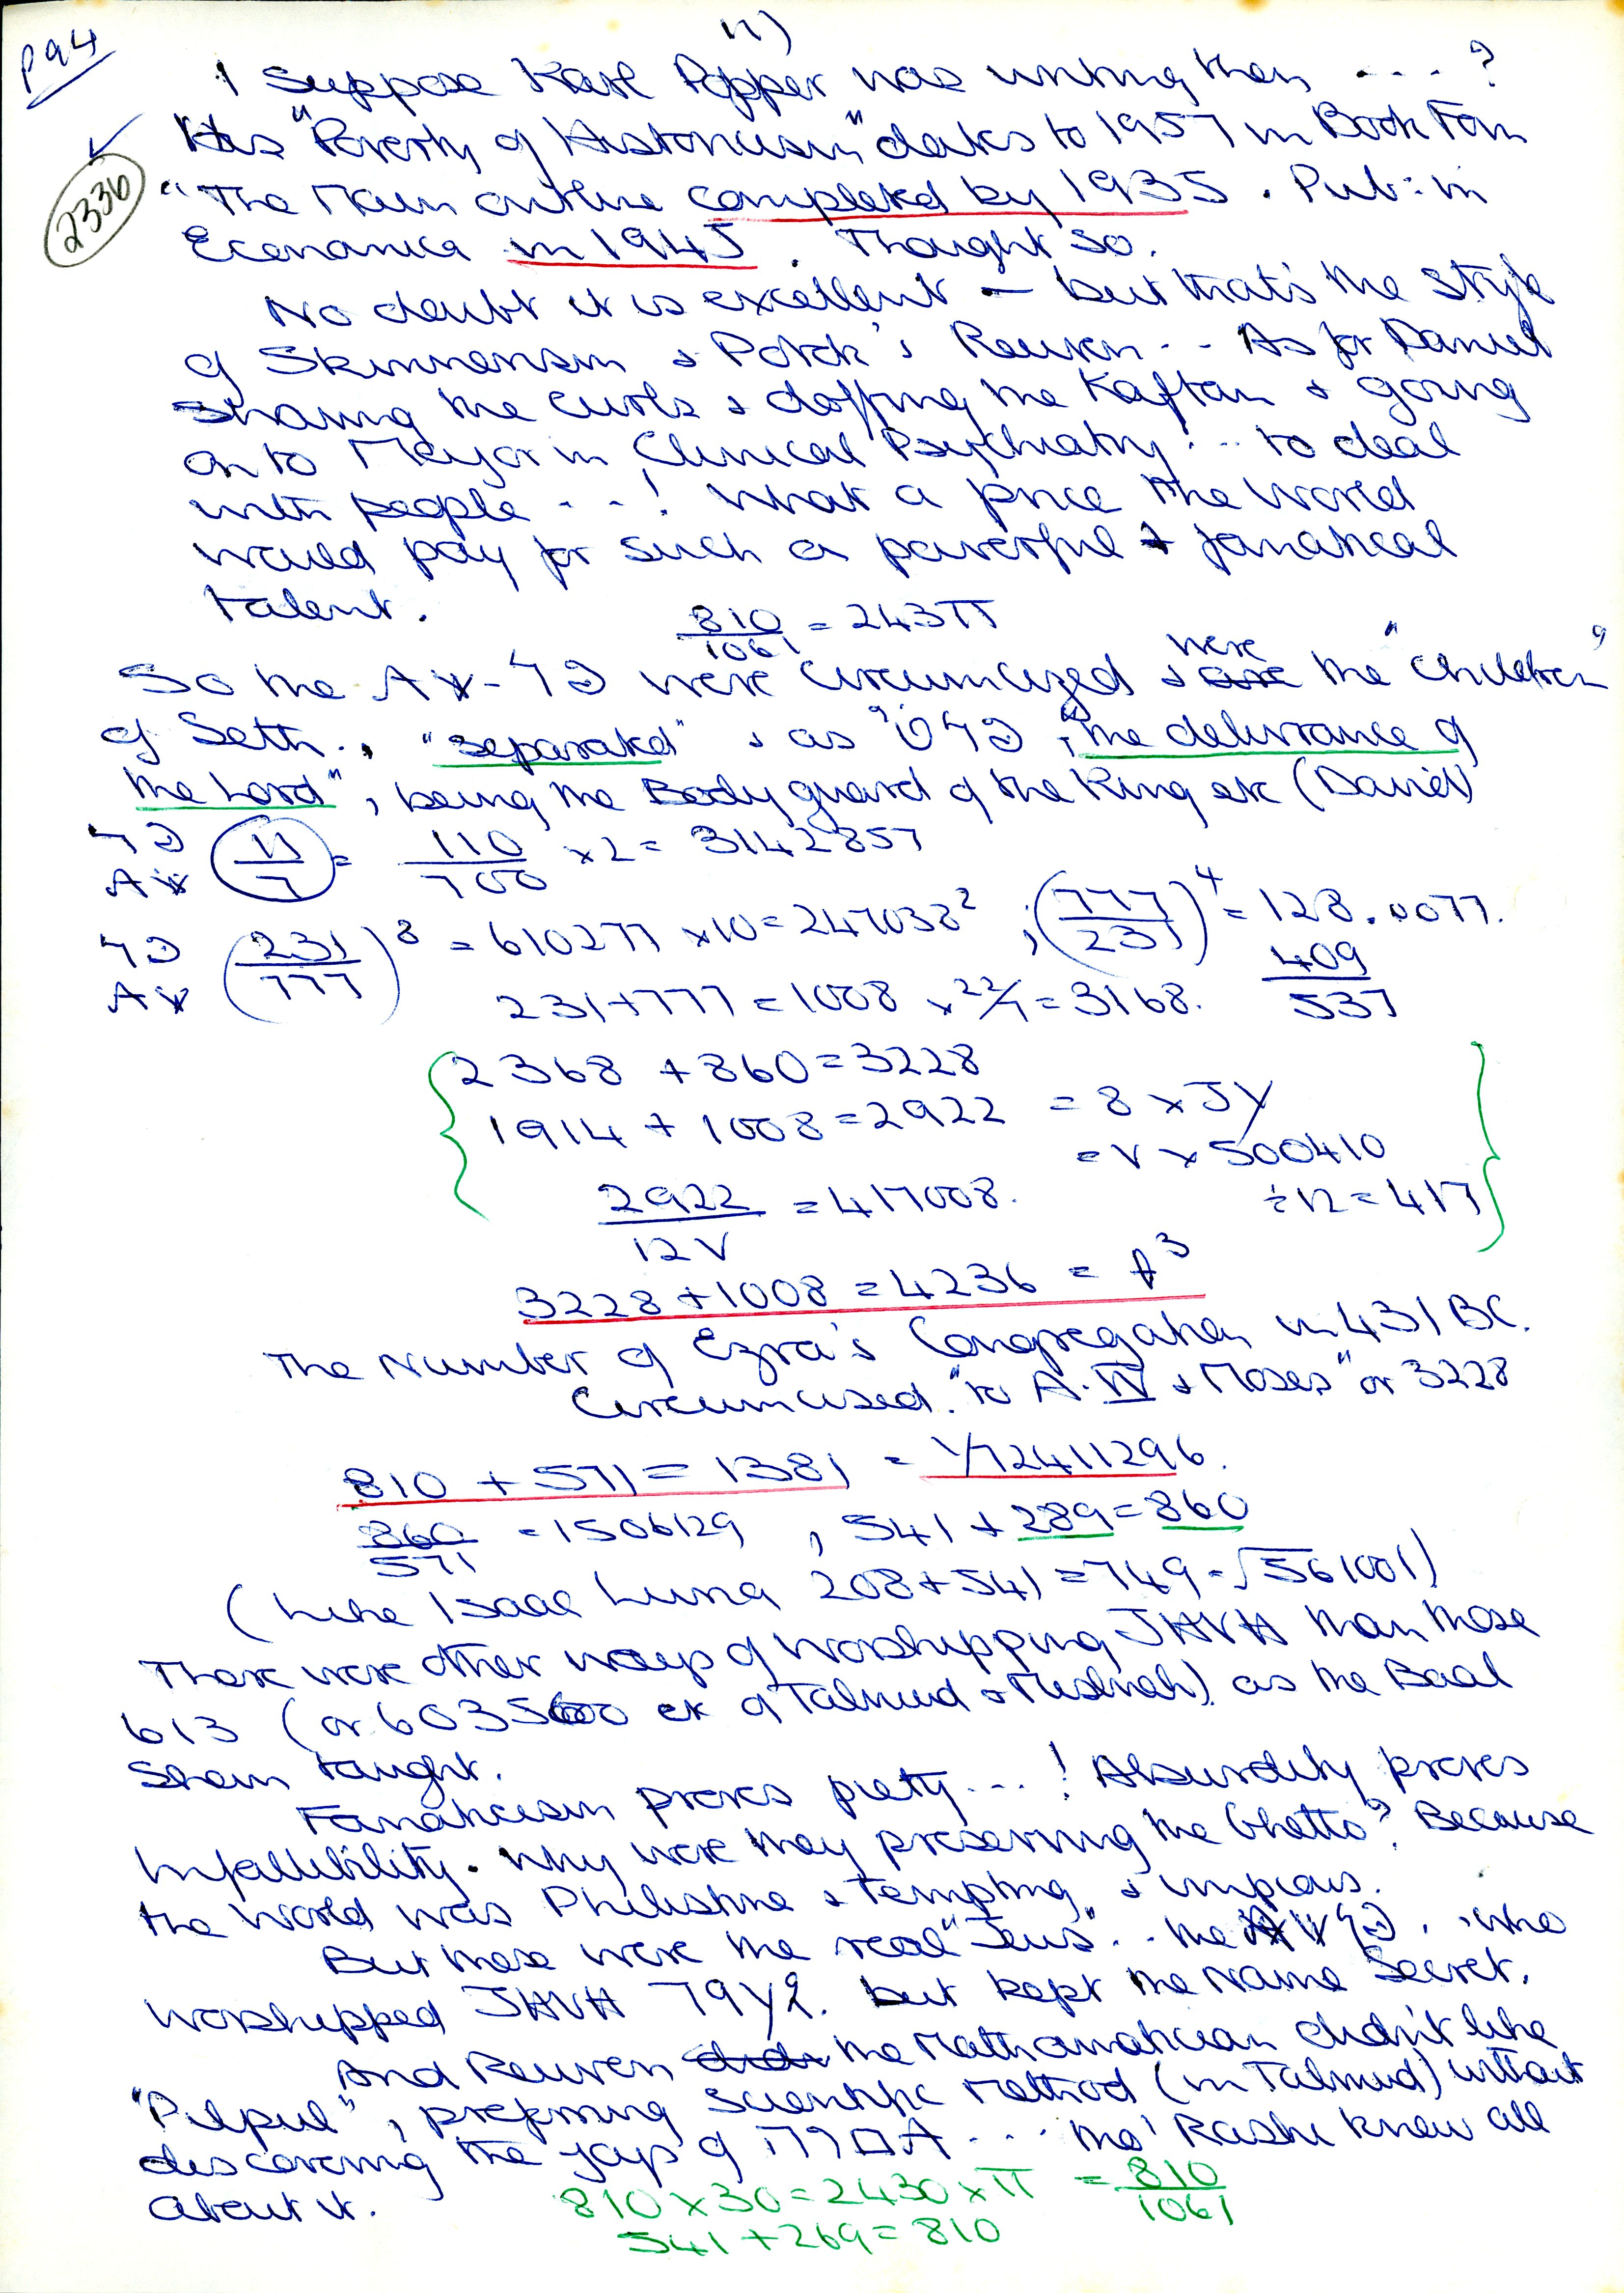 p94
11)
I suppose Karl Popper was writing then .... ?
His "Poverty of Historicism" dates to 1957 in Book Form
2336
"The Main outline completed by 1935. Pub: in
Economica in 1945. Thought so.
No doubt it is excellent — but that's the style
of Skinnerism & Potok's Reuven.. As for Daniel
shaving the curls & doffing the Kaftan & going
on to Major in Clinical Psychiatry!.. to deal
with people ...! What a price the World
would pay for such a powerful & fanatical
talent.
810/1061 = 243π
So the were circumcized & were the "children"
of Seth., "separated" & as "the deliverance of
the Lord", being the Body guard of the King etc (David)
11/7 = 110/700 x 2 = 3142857
(231/777)8 = 610277 x 10 = 2470382 ; (777/231)4 = 128.0077.
231 + 777 = 1008 x 22/7 = 3168. 409/537
2368 + 860 = 3228
1914 + 1008 = 2922 = 8 x JY
= V x 500410
2922/12V = 417008. ÷ 12 = 417
3228 + 1008 = 4236 = A3
The Number of Ezra's Congregation in 431 BC.
Circumcised. "to & Moses" or 3228
810 + 571 = 1381 = 1/72411296.
860/571 = 1506129 , 541 + 289 = 860
(Like Isaac Luria 208 + 541 = 749 = √561001)
There were other ways of worshipping JHVH than those
613 (or 6035600 etc of Talmud & Mishnah) as the Baal
Shem taught.
Fanaticism proves piety...! Absurdity proves
Infallibility. Why were they preserving the Ghetto? Because
the World was Philistine & tempting & impious.
But these were the real "Jews".. the , who
worshipped JHVH but kept the Name Secret.
And Reuven the Mathematician didn't like
"Pilpul", preferring Scientific Method (in Talmud) without
discovering the of ... tho' Rashi knew all
about it.
810 x 30 = 2430 x π = 810/1061
541 + 269 = 810